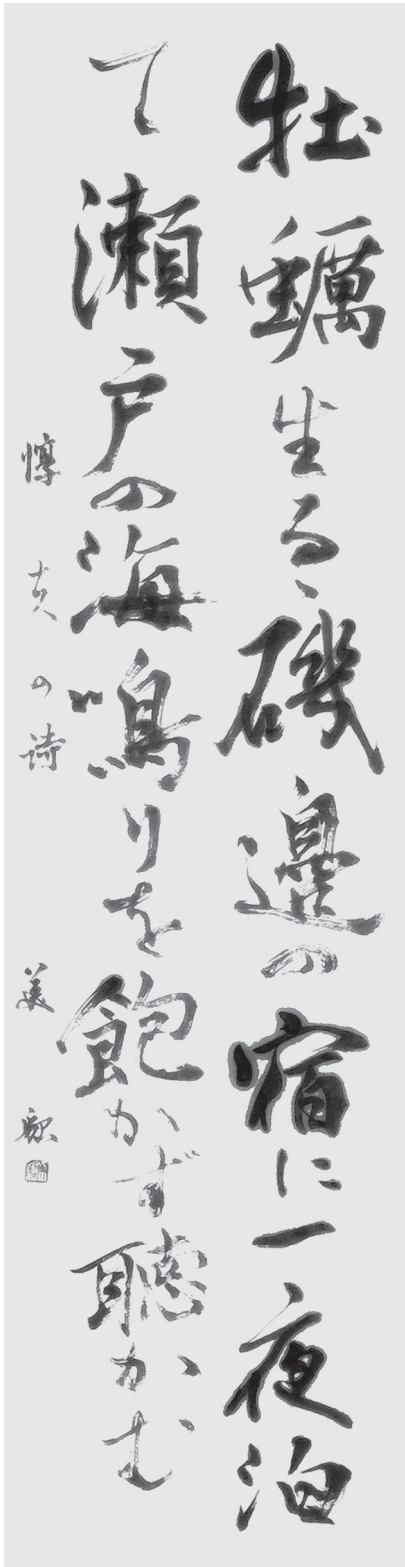 牡蠣生るる磯邊の宿に一夜泊
て瀬戸の海鳴りを飽かず聴かむ
惇夫の詩 美歌